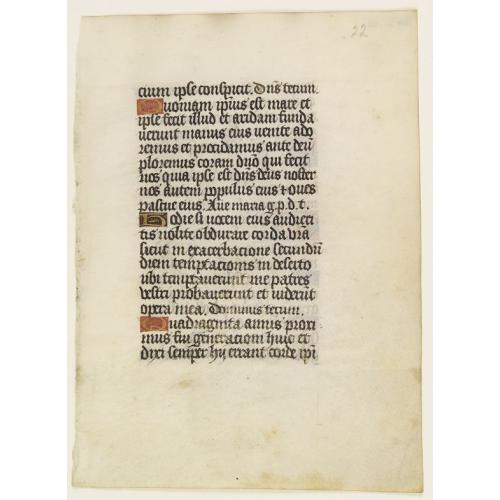 22
cium ipse conspicit. Dns tecum.
Quoniam ipius est mare et
ipse fecit illud et aridam funda
uerunt manus eius uenite ado
remus et procidamus ante deu
ploremus coram dno qui fecit
nos quia ipse est dns deus noster
nos autem populus eius et oues
pascue eius. Aue maria g.p.d.t.
Hodie si uocem eius audieri
tis nolite obdurare corda vra
sicut in exacerbacione secundu
diem temptacionis in deserto
ubi temptauerunt me patres
vestri probauerunt et uiderut
opera mea. Dominus tecum.
Quadraginta annis proxi
mus fui generacioni huic et
dixi semper hij errant corde ipi